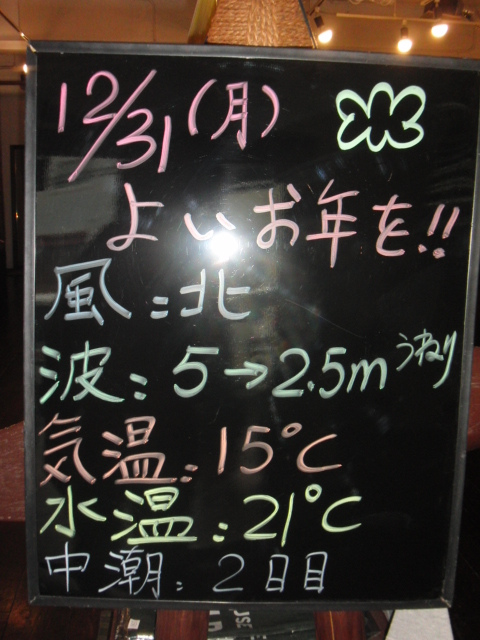 12/31(月)
よいお年を!!
風:北
波:5→2.5m うねり
気温:15℃
水温:21℃
中潮:2日目